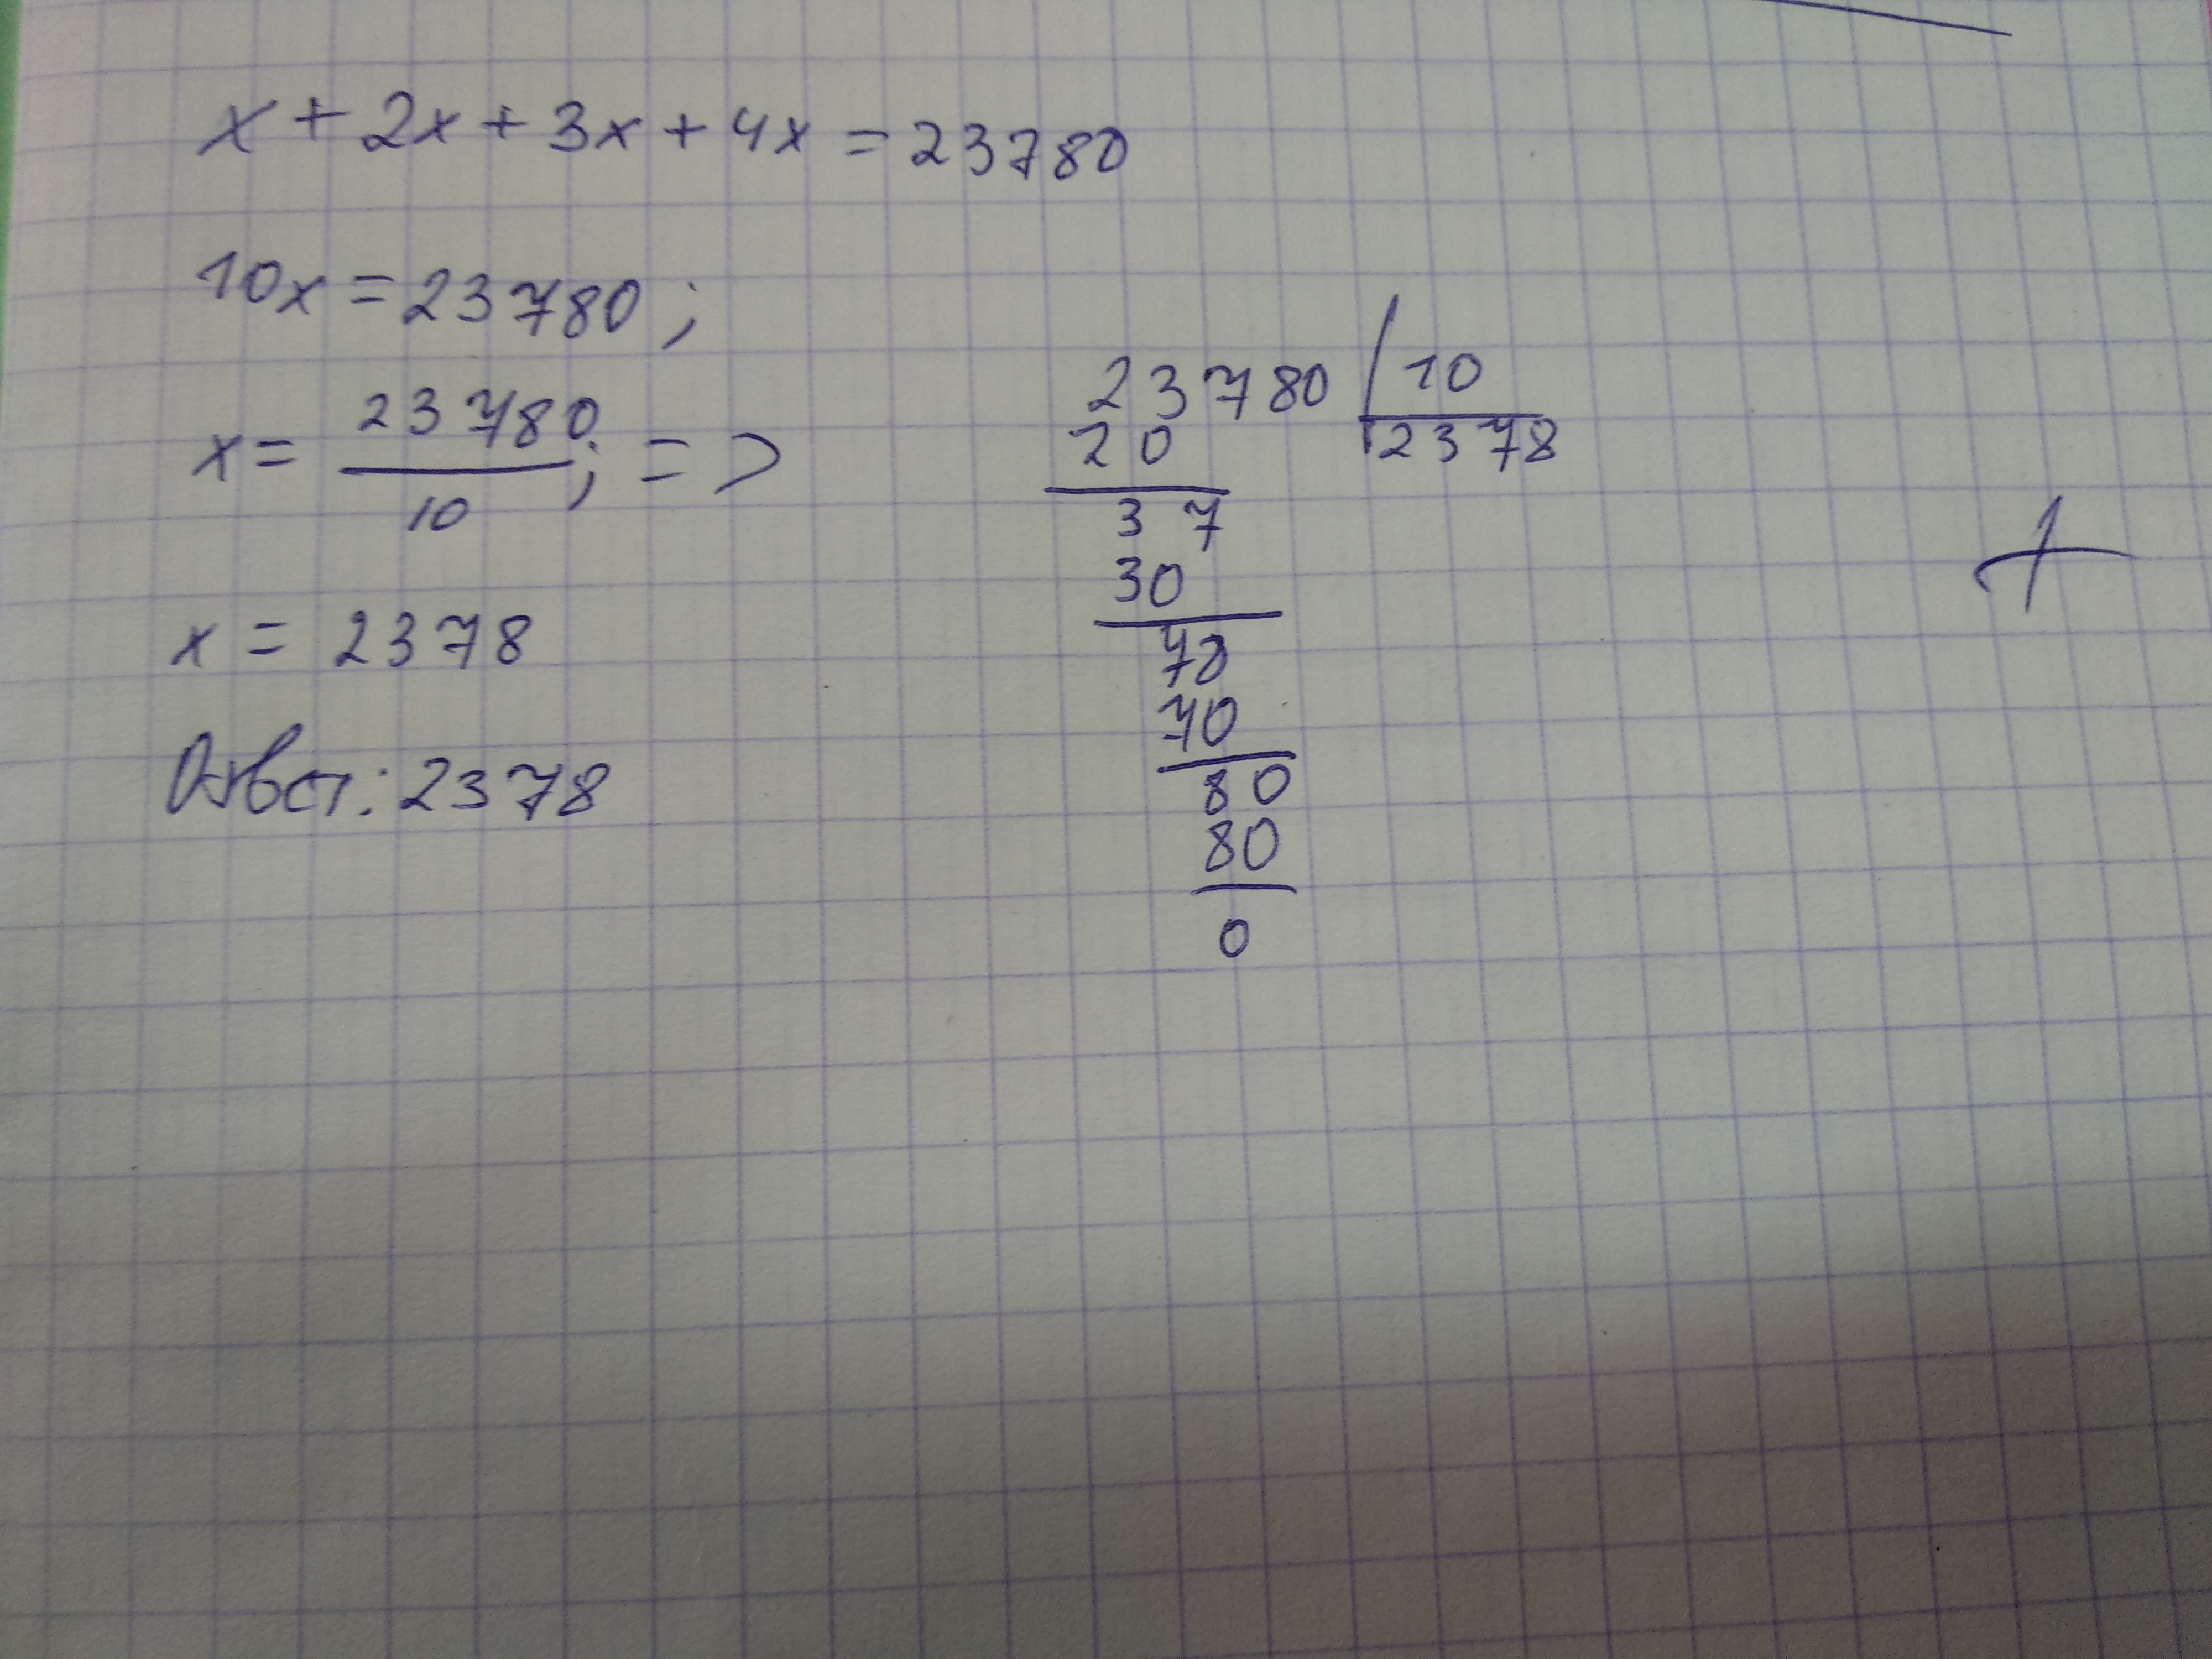 x + 2x + 3x + 4x = 23780
10x = 23780 ;
x = 23780/10 ; =>
x = 2378
Ответ: 2378
23780 | 10
20 2378
37
30
78
70
80
80
0
+